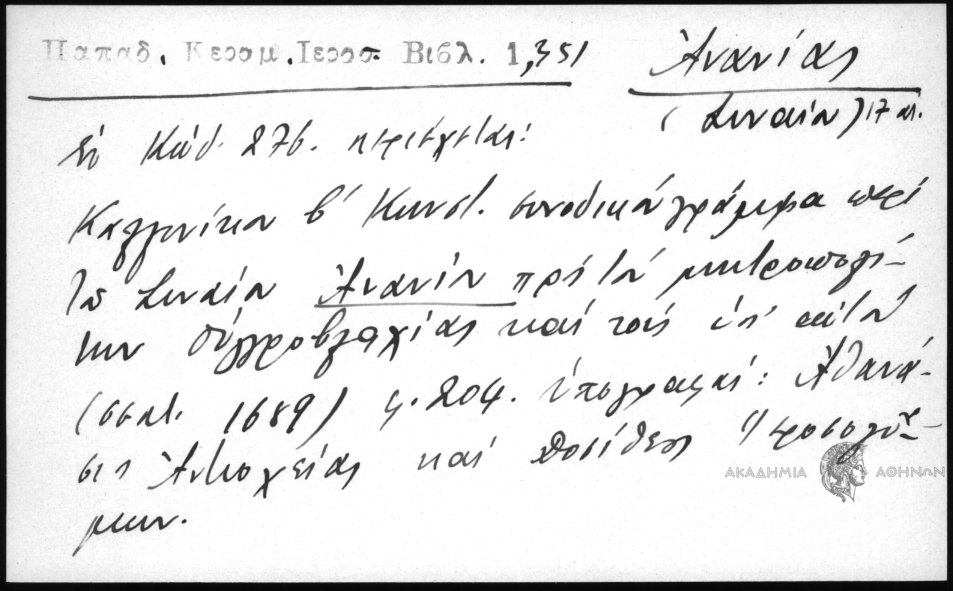 Παπαδ. Κεραμ. Ιεροσ. Βιβλ. 1,351
Ἀνανίας
(Σιναΐου) 17 αἰ.
Ἐν Κώδ. 276. περιέχεται:
Καλλινίκου β' Κωνστ. συνοδικὸν γράμμα περὶ
τοῦ Σιναΐου Ἀνανίου πρὸς τὸν μητροπολί-
την Οὐγγροβλαχίας καὶ τοὺς ὑπ' αὐτὸν
1689) φ. 204. ὑπογραφαί: Ἀθανά-
σιος Ἀντιοχείας καὶ Δοσίθεος Ἱεροσολύ-
μων.
ΑΚΑΔΗΜΙΑ ΑΘΗΝΩΝ